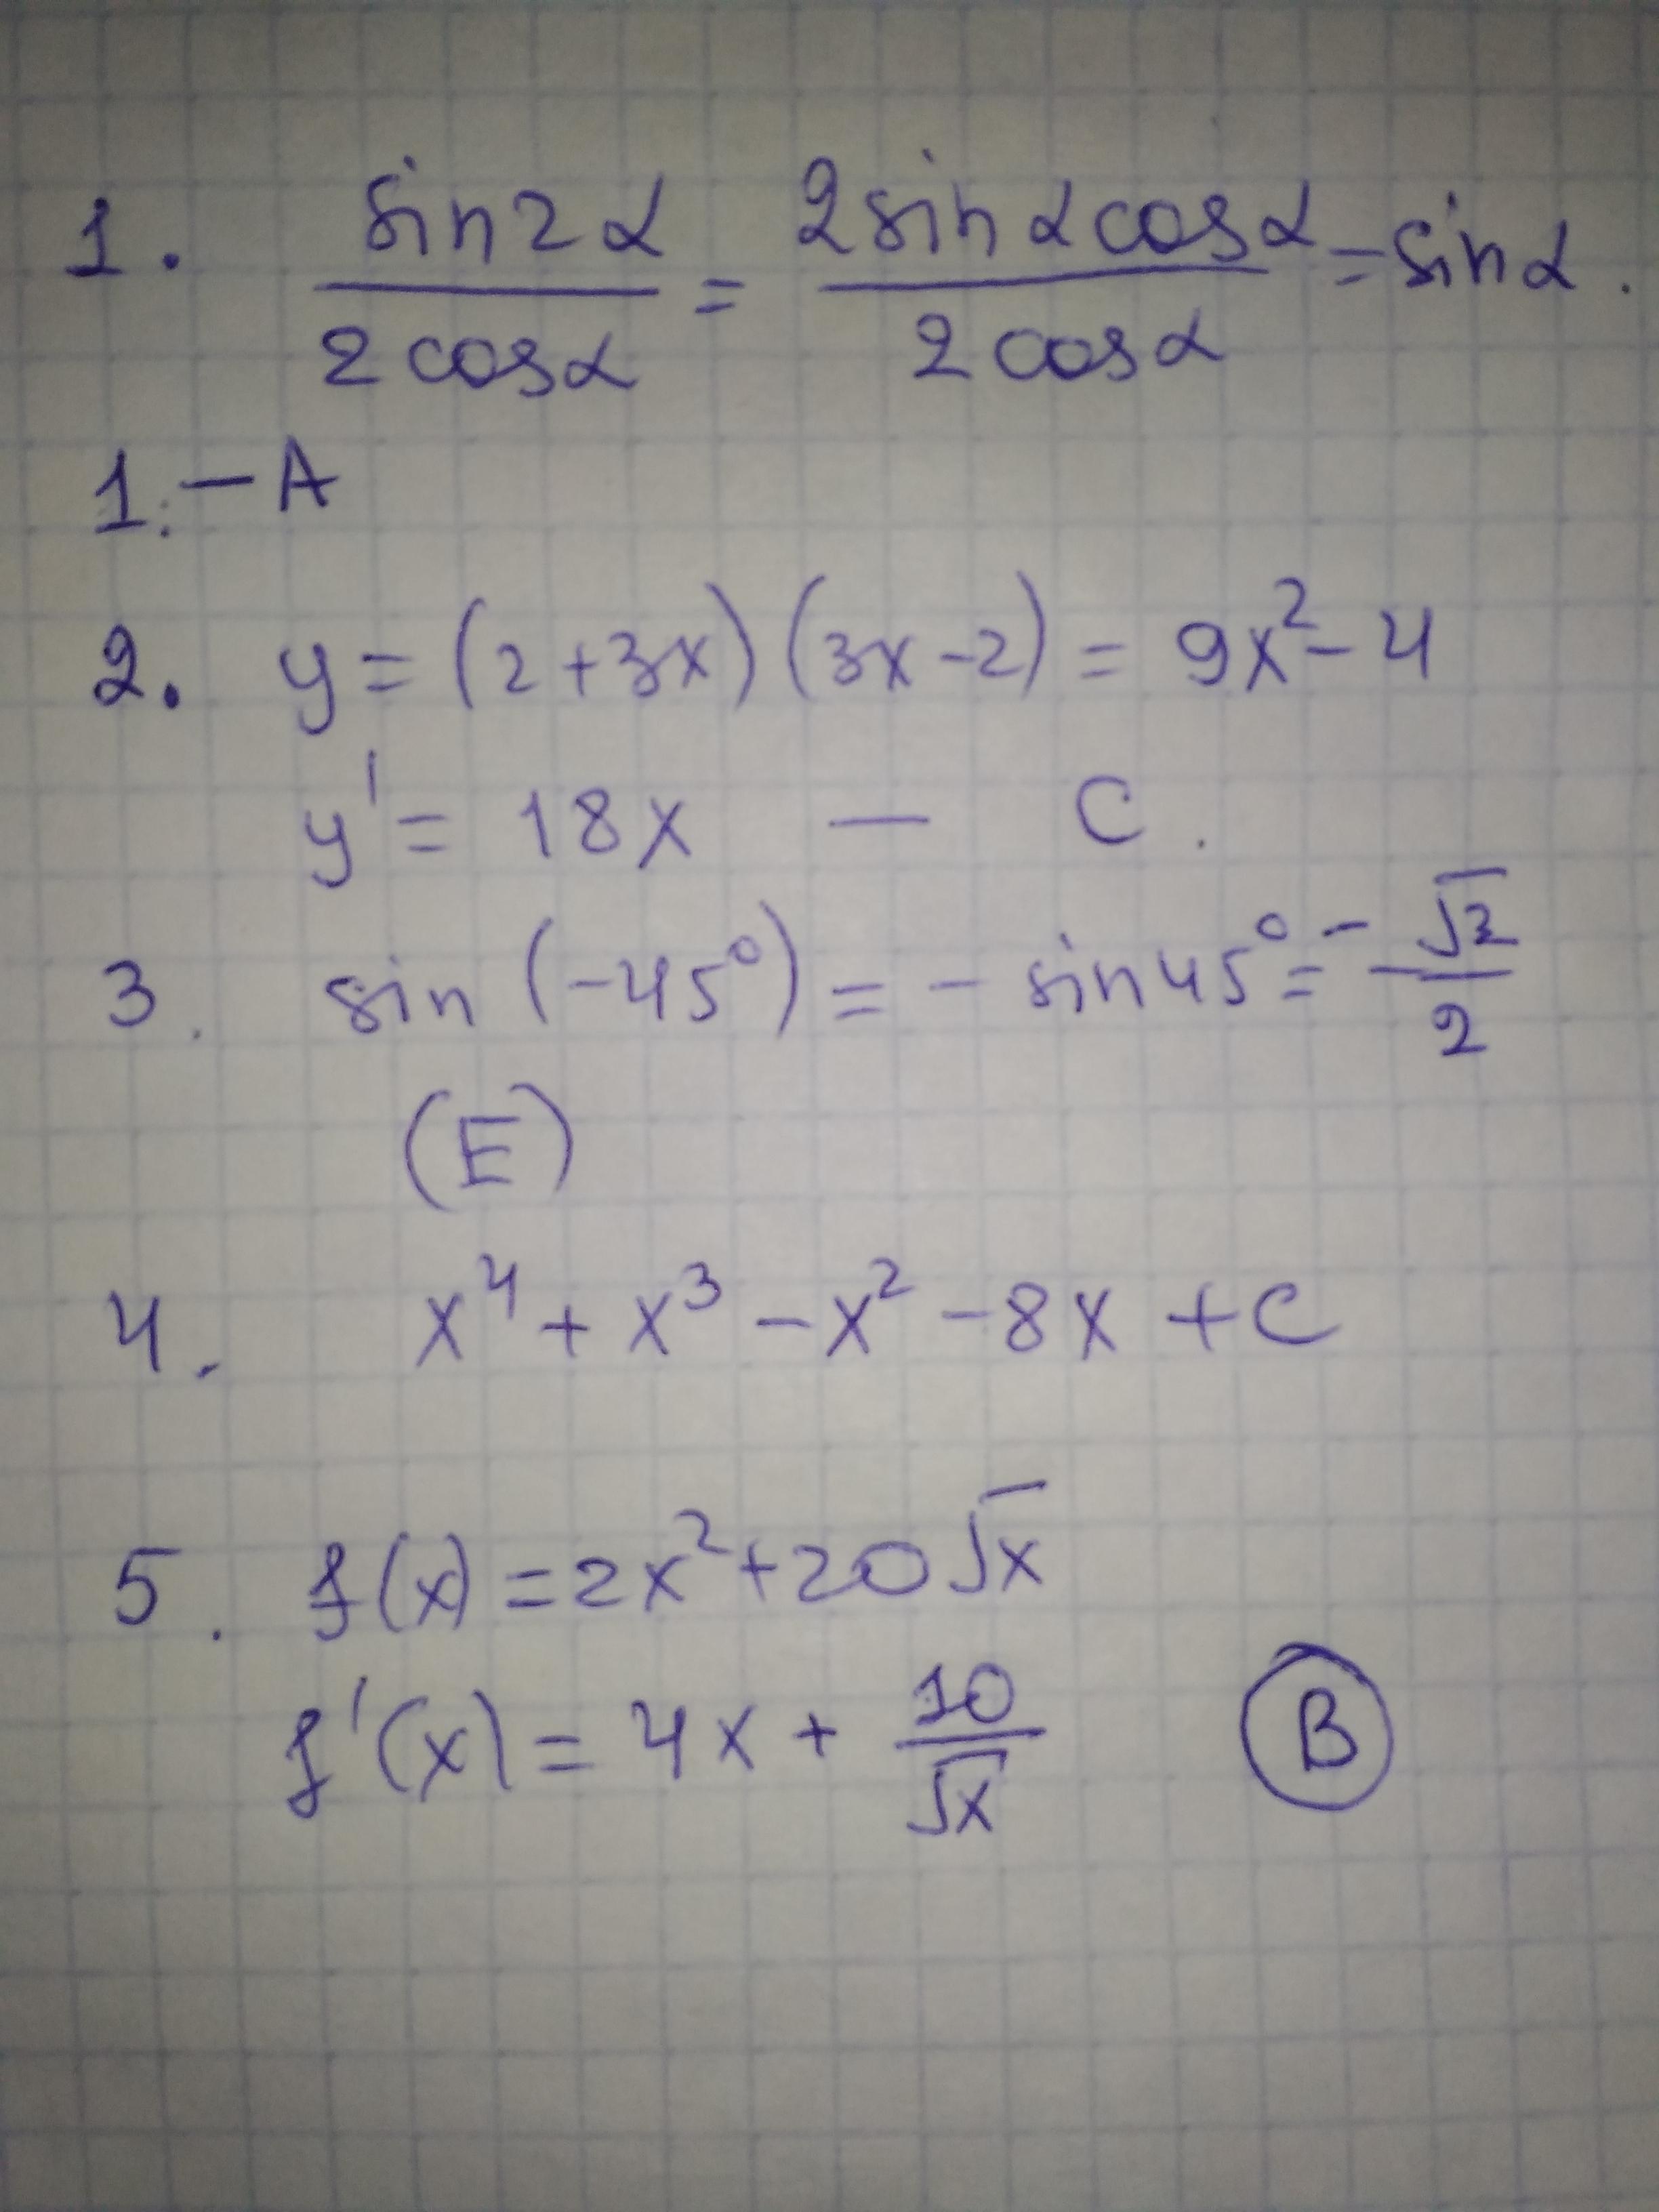 1. sin2α/2cosα = 2sinαcosα/2cosα = sinα.
1. – A
2. y = (2+3x)(3x-2) = 9x²-4
y' = 18x — C.
3. sin(-45°) = - sin45° = - √2/2
(E)
4. x⁴ + x³ - x² - 8x + C
5. f(x) = 2x² + 20√x
f'(x) = 4x + 10/√x B